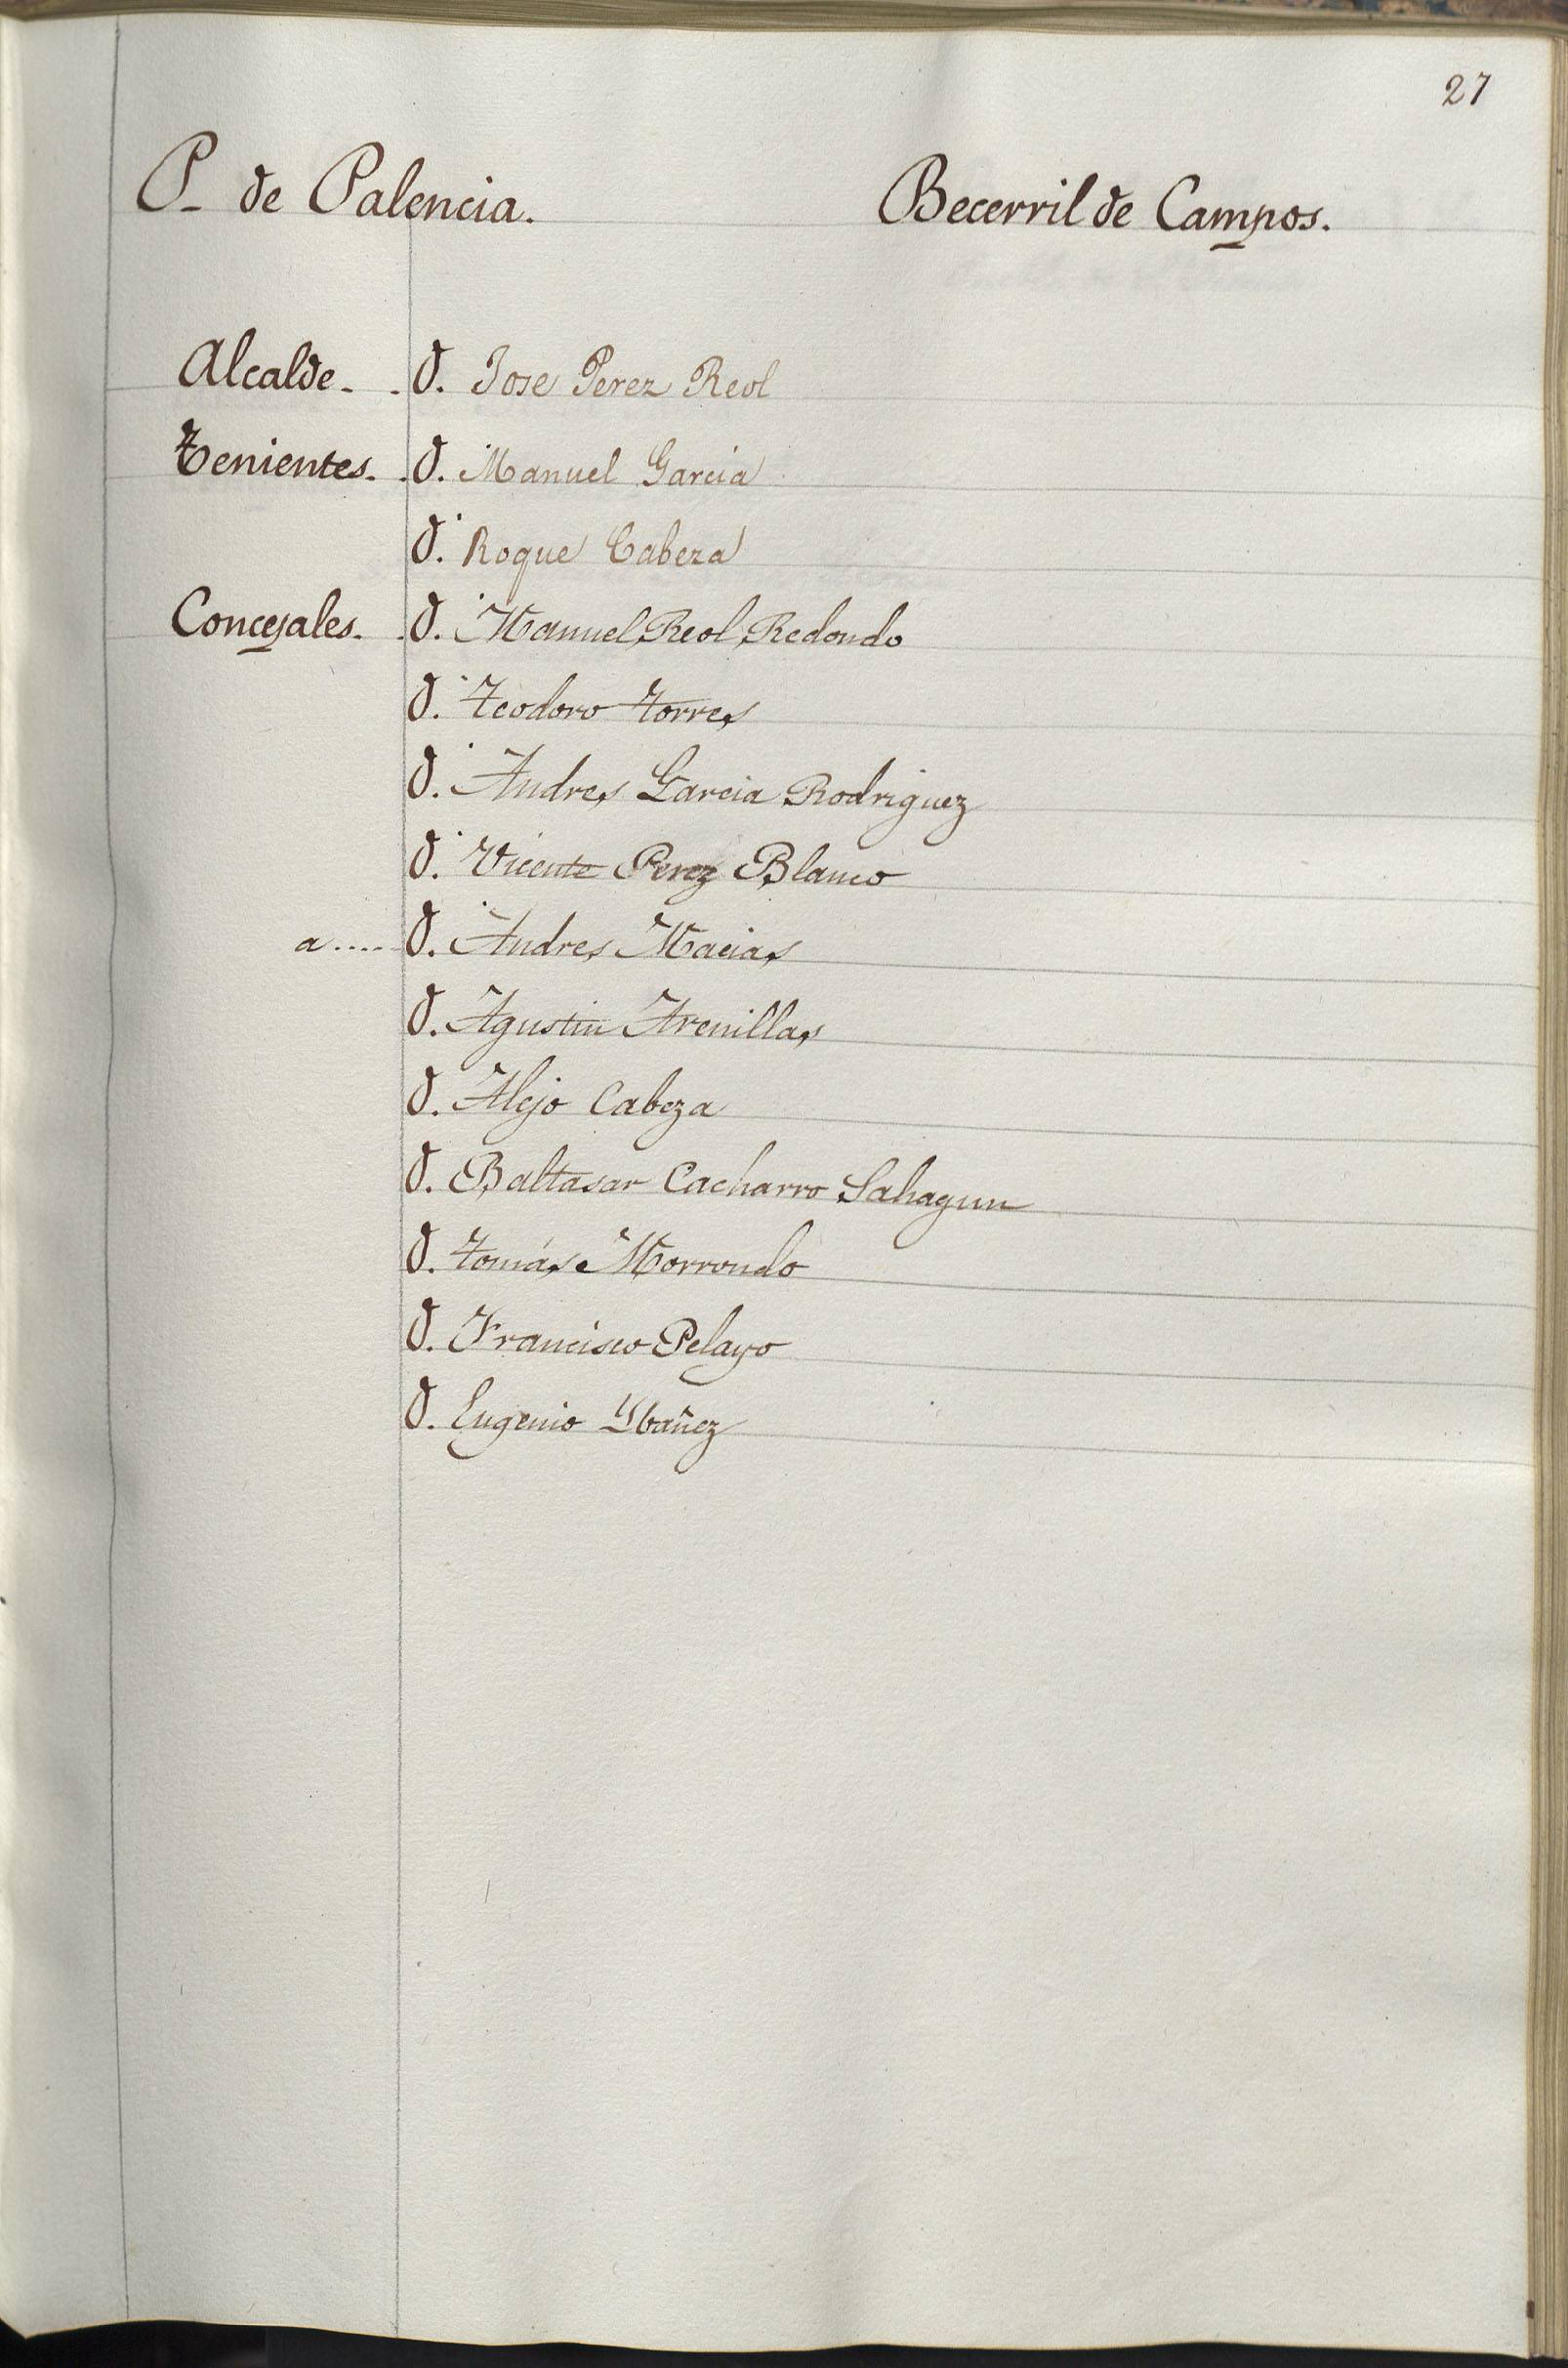 27
P. de Palencia. Becerril de Campos.
Alcalde. . D. Jose Perez Reol
Tenientes. . D. Manuel Garcia
D. Roque Cabeza
Concejales. . D. Manuel Reol Redondo
D. Teodoro Torres
D. Andres Garcia Rodriguez
D. Vicente Perez Blanco
a.... D. Andres Macias
D. Agustin Arenillas
D. Alejo Cabeza
D. Baltasar Cacharro Sahagun
D. Tomás Morrondo
D. Francisco Pelayo
D. Eugenio Ybañez